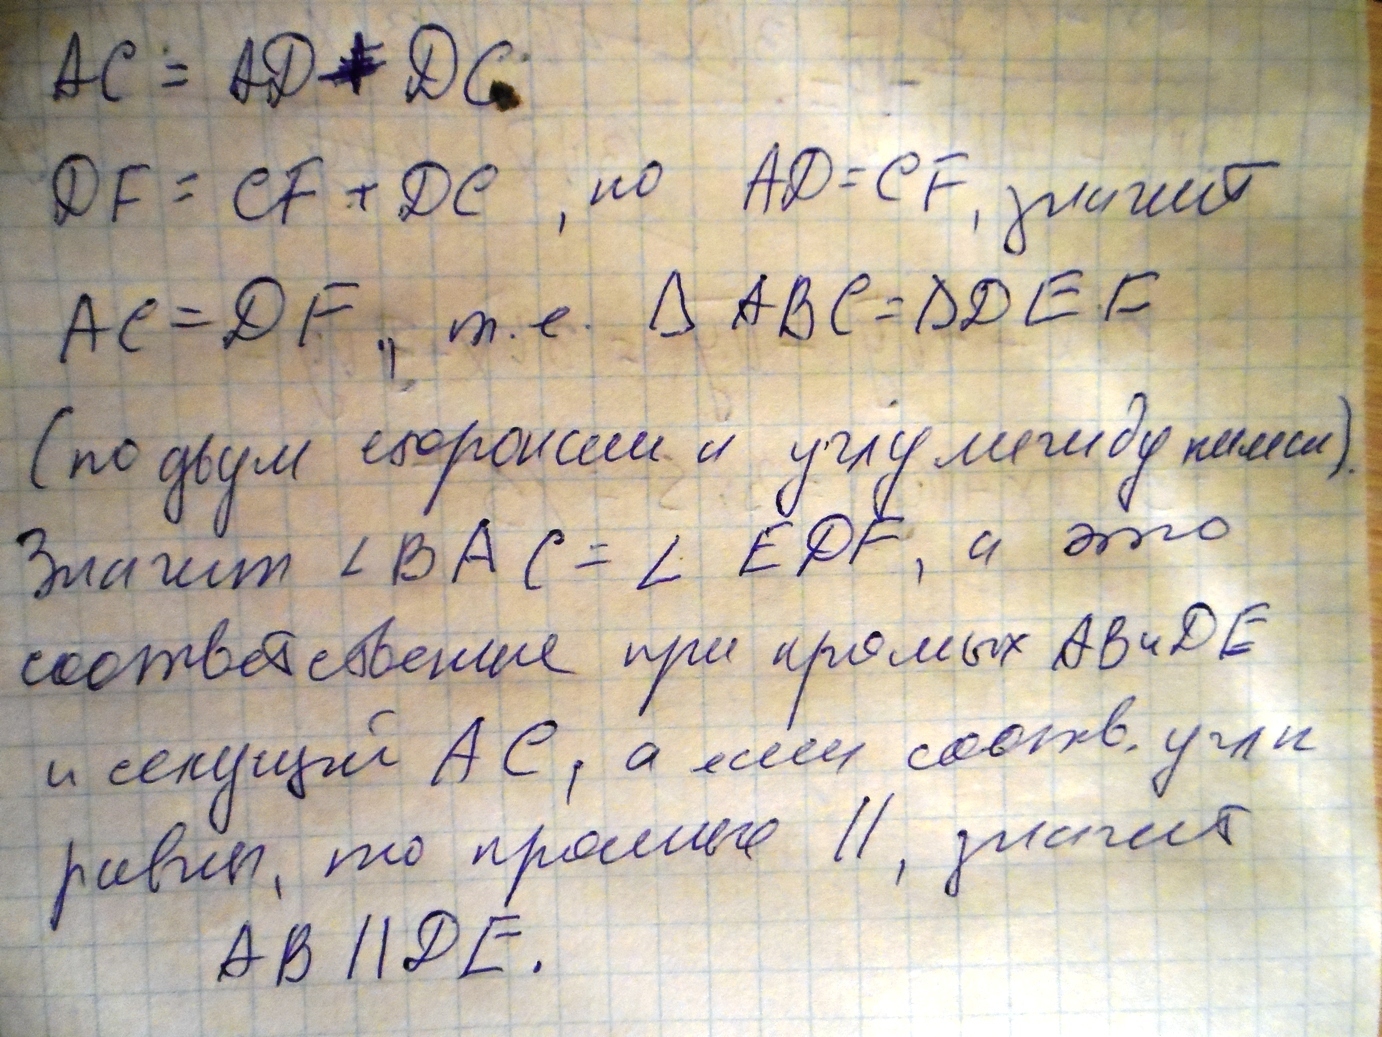 AC = AD + DC
DF = CF + DC, но AD = CF, значит
AC = DF, т.е. Δ ABC = Δ DEF
(по двум сторонам и углу между ними).
Значит ∠BAC = ∠EDF, а это
соответственные при прямых AB и DE
и секущей AC, а если соотв. углы
равны, то прямые ||, значит
AB || DE.